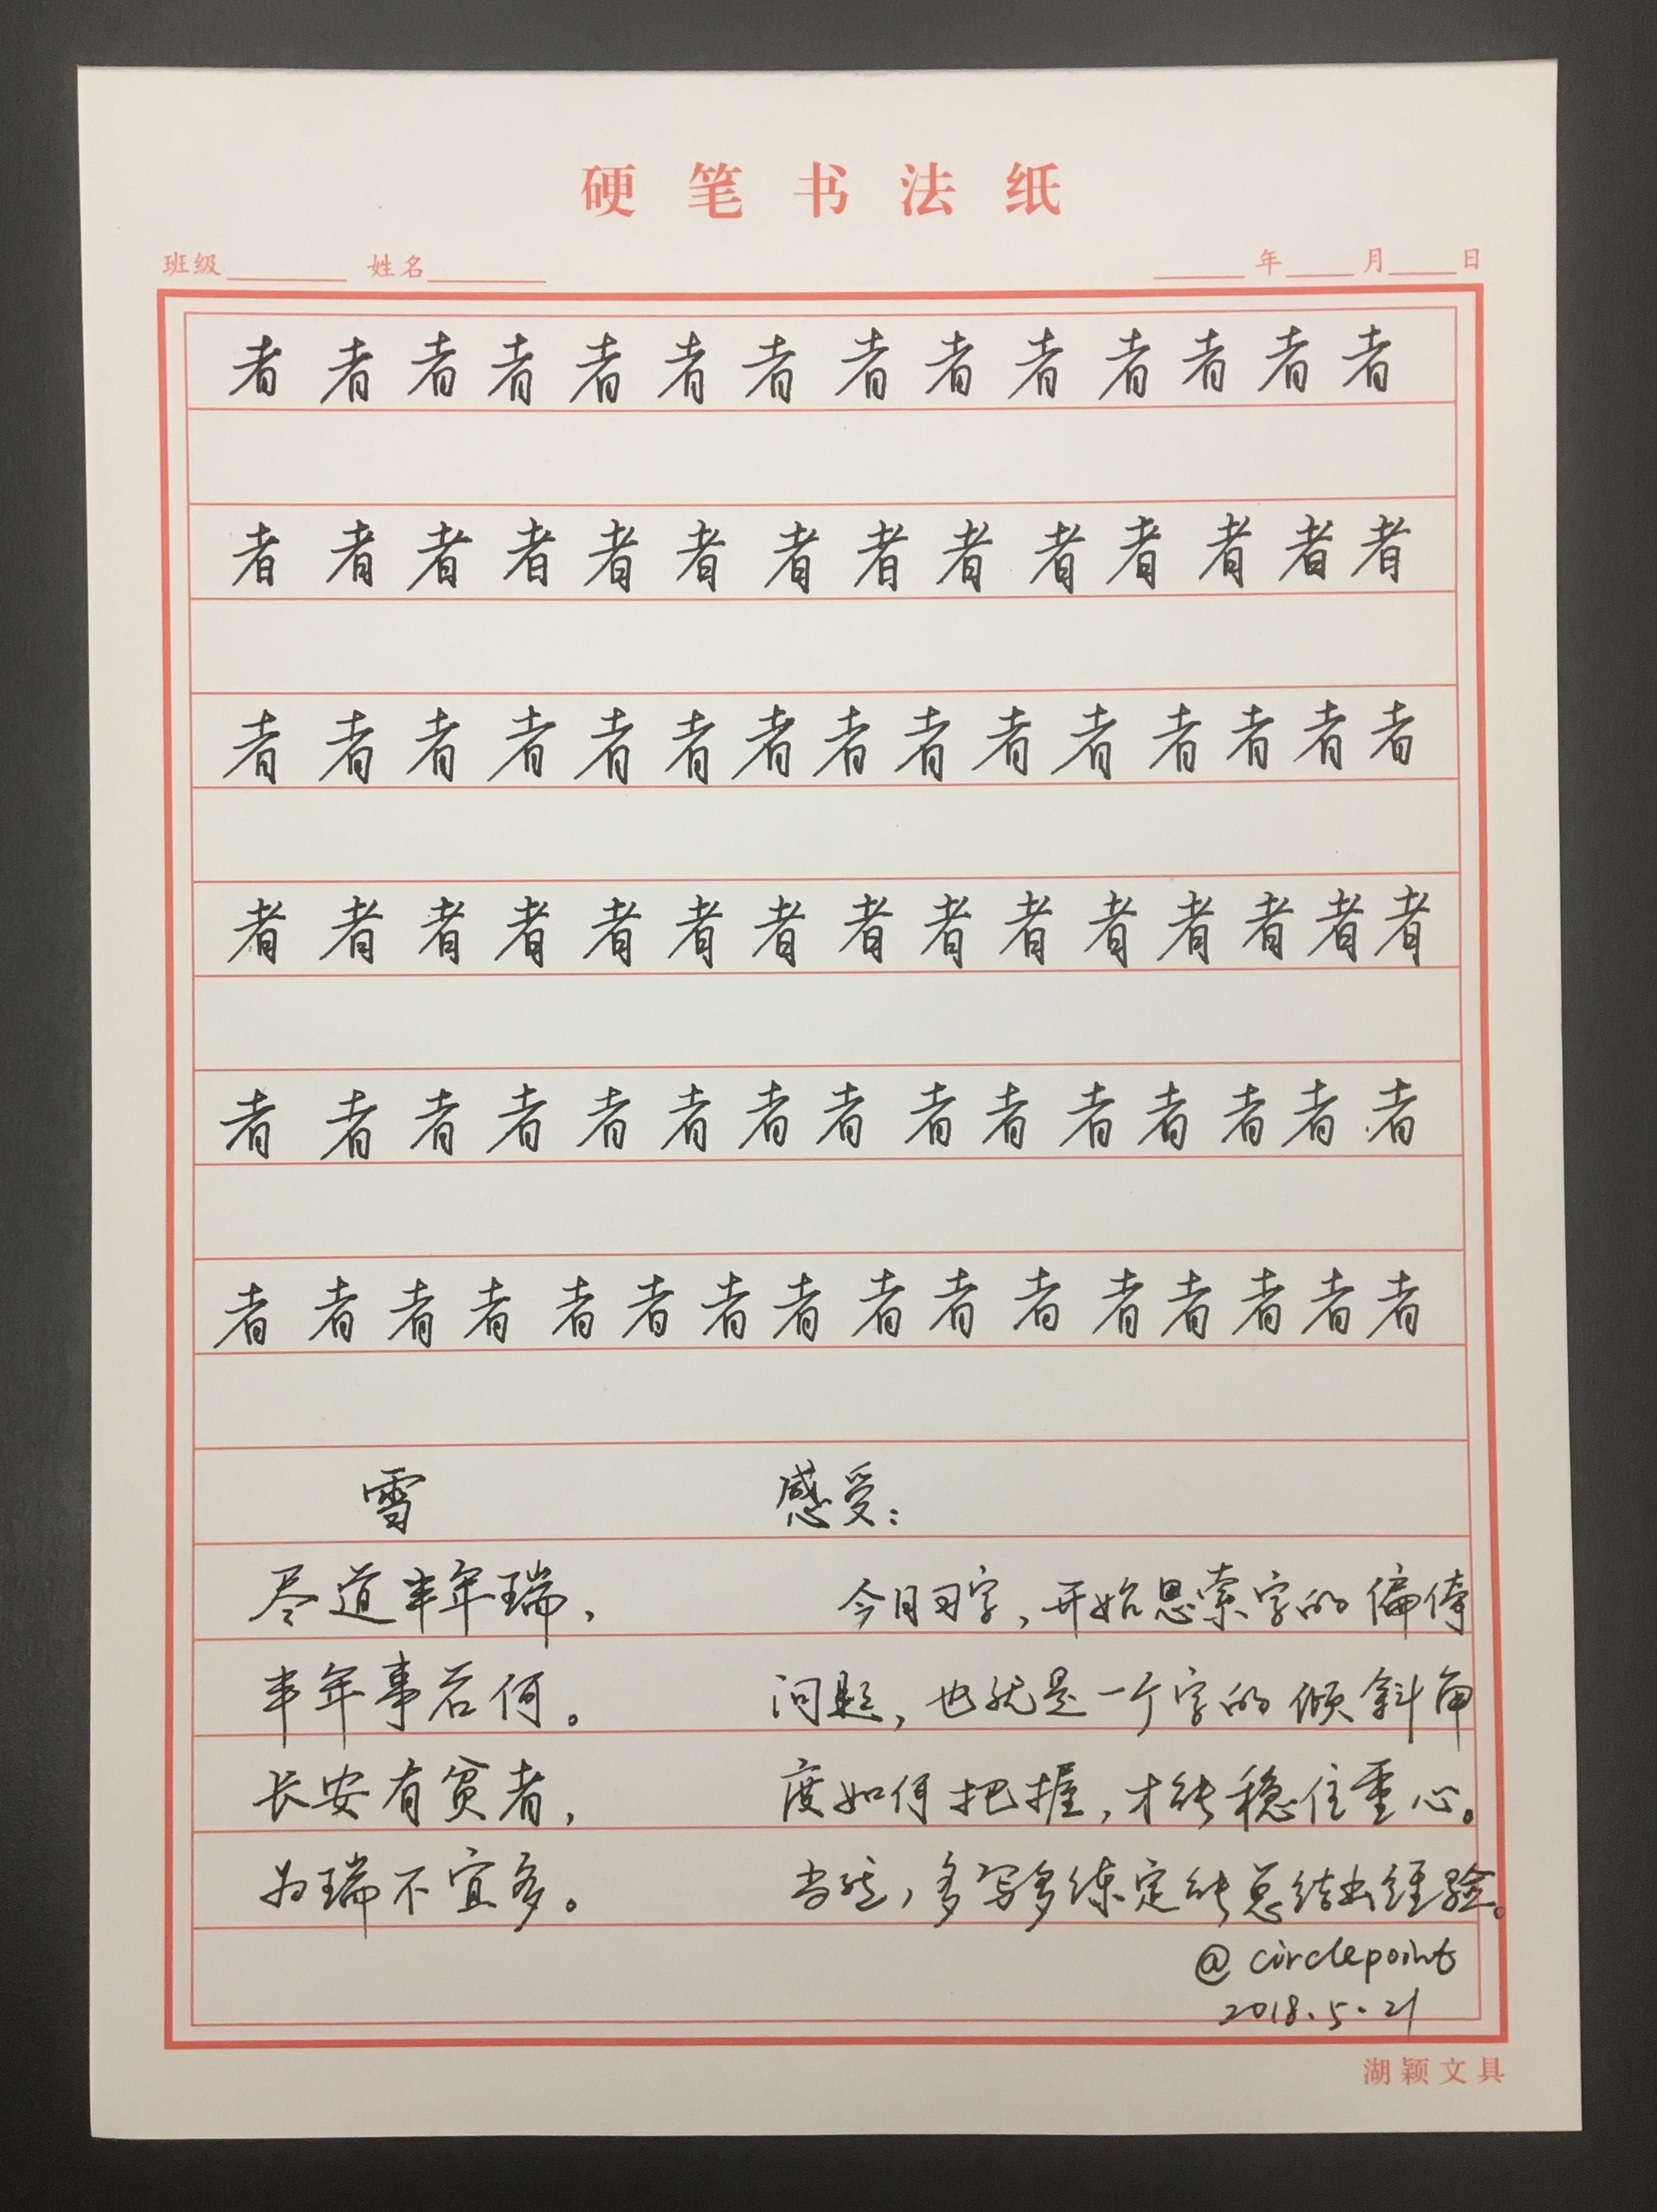 硬笔书法纸
班级 姓名 年 月 日
者者者者者者者者者者者者者者
者者者者者者者者者者者者者者
者者者者者者者者者者者者者者者
者者者者者者者者者者者者者者者
者者者者者者者者者者者者者者者
者者者者者者者者者者者者者者者者
雪
尽道丰年瑞，
丰年事若何。
长安有贫者，
为瑞不宜多。
感受：
今日习字，开始思索字的偏倚
问题，也就是一个字的倾斜角
度如何把握，才能稳住重心。
当然，多写多练定能总结出经验。
@circlepoints
2018.5.21
湖颖文具